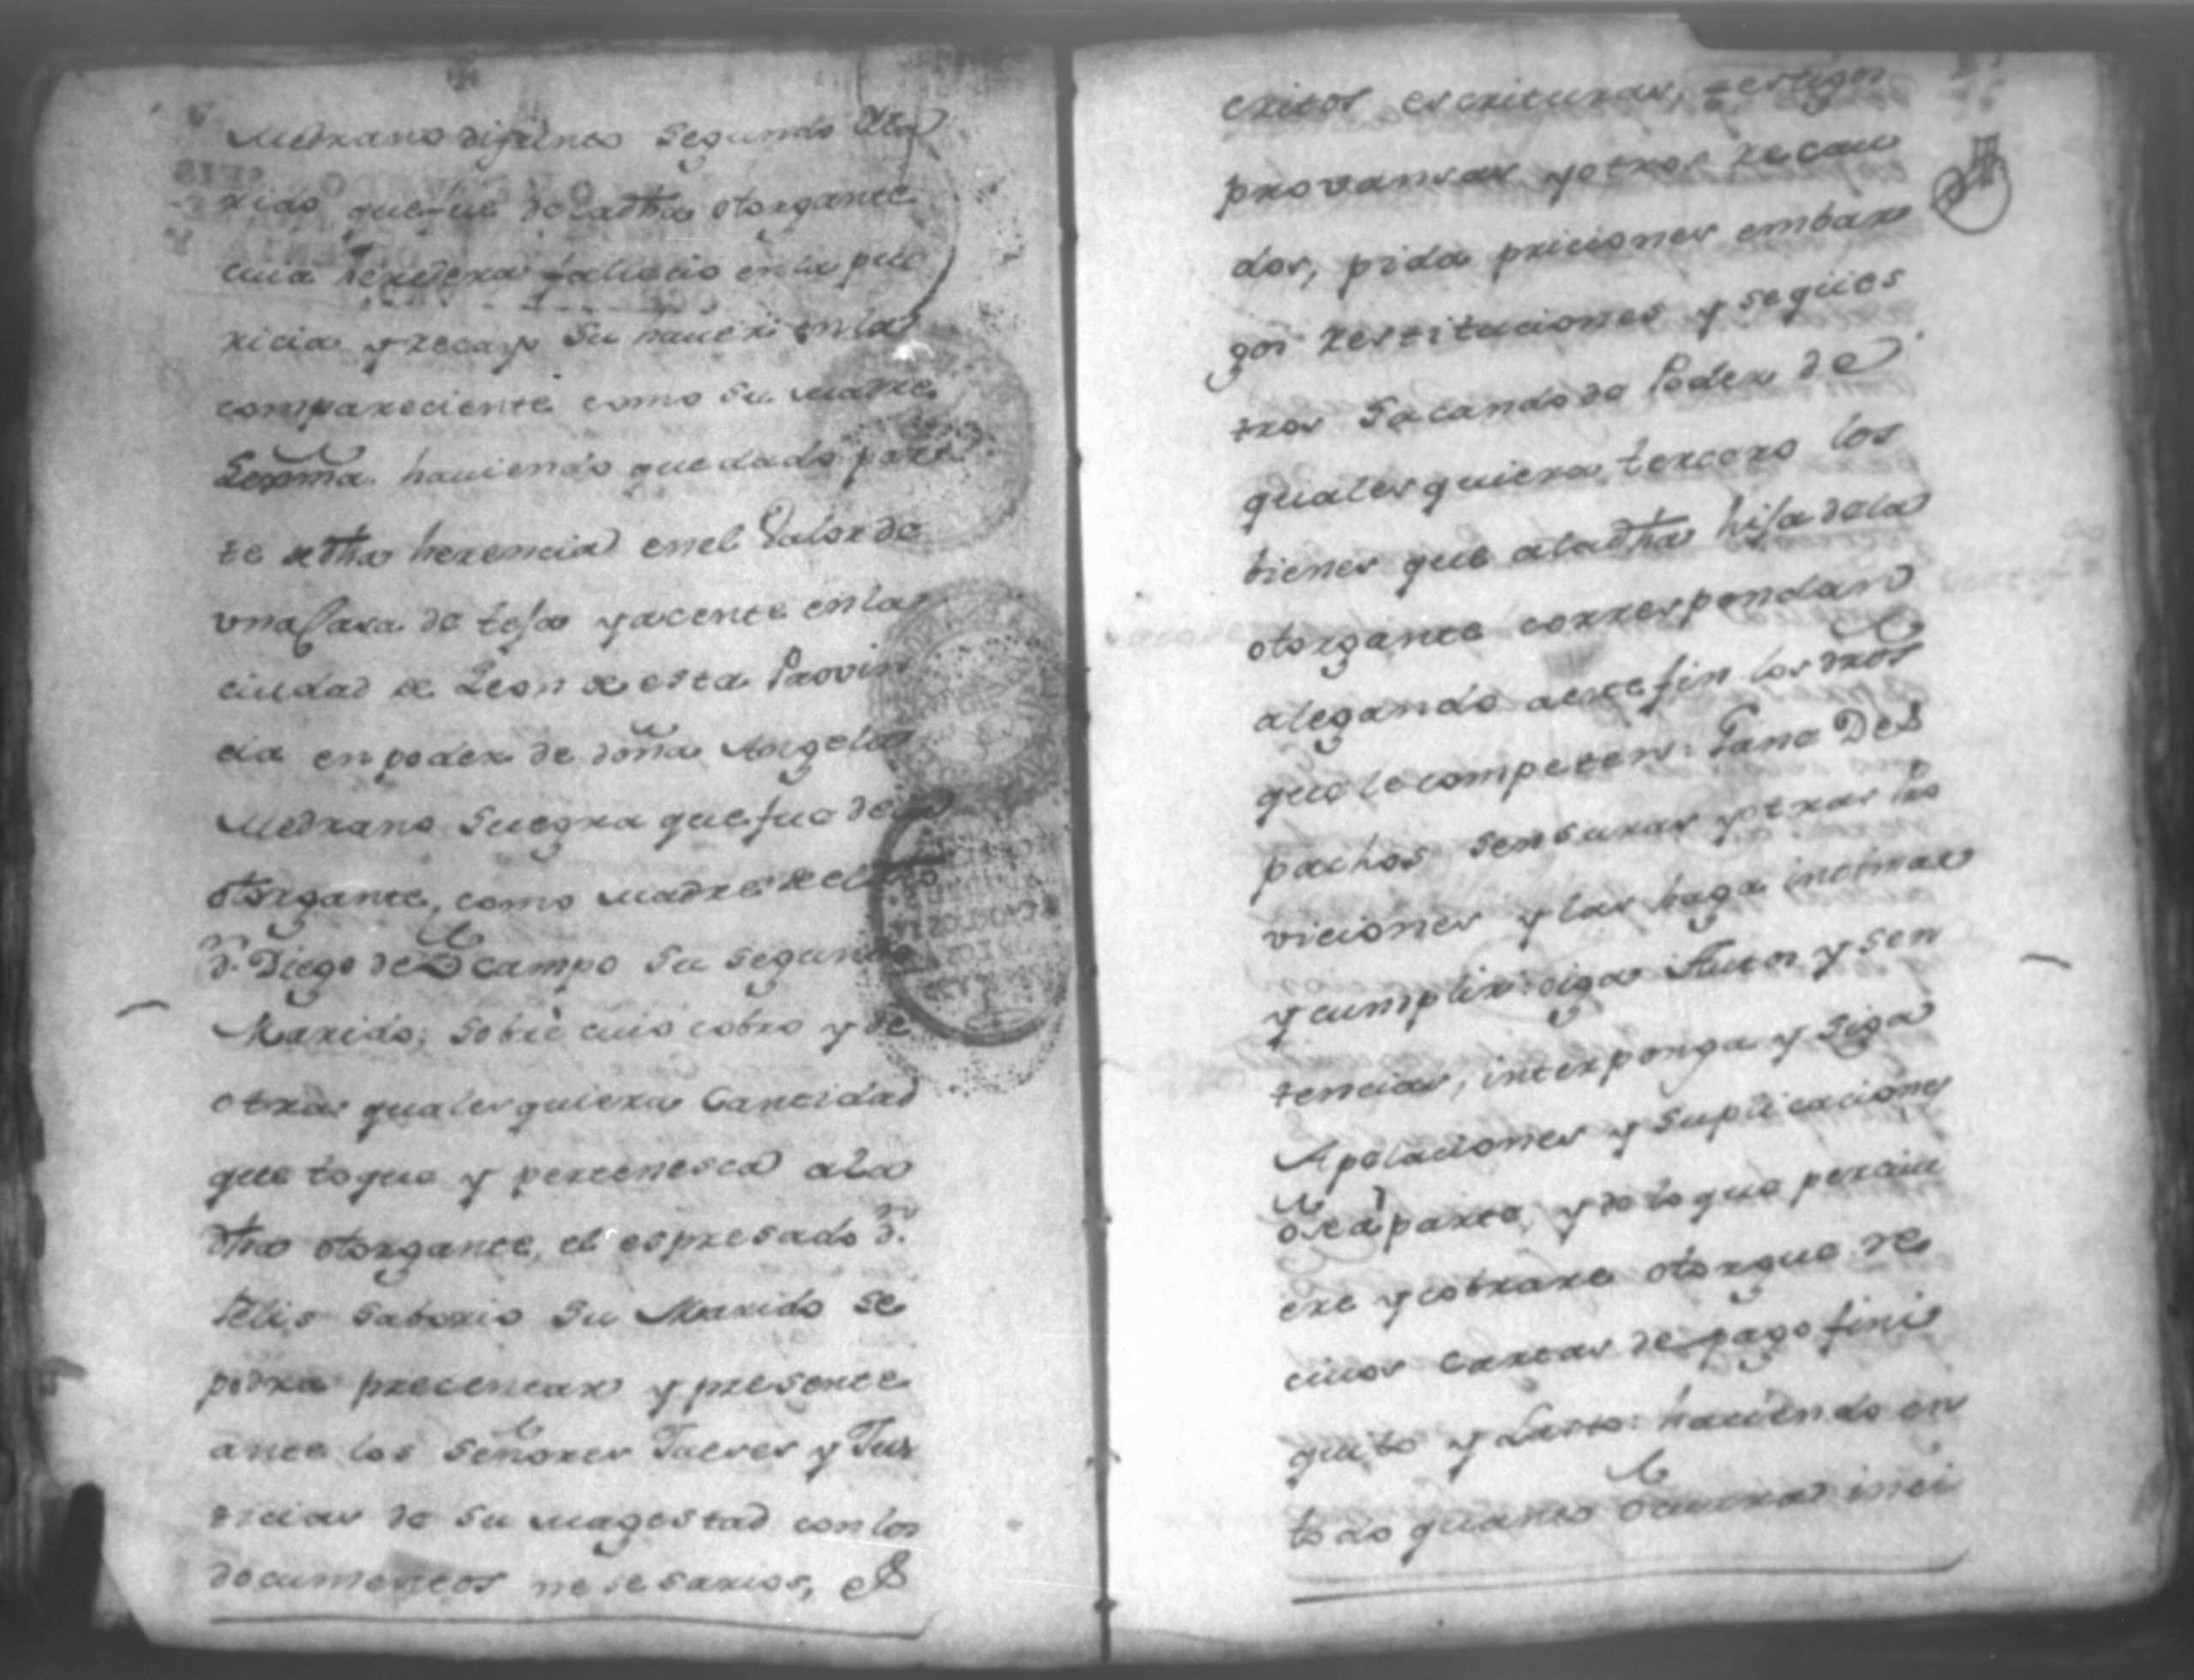 Medrano difunto segundo Ma
rido que fue de la dha otorgante
cuia heredera fallecio en la pue
ricia y recayo su haver en la
compareciente como su madre
Lexma. haviendo quedado par
te de dha herencia en el Valor de
una Casa de teja yacente en la
ciudad de Leon de esta Provin
cia en poder de doña Angela
Medrano Suegra que fue de la
otorgante, como madre de el dho
dn. Diego de Ocampo su segundo
Marido; sobre cuio cobro y de
otras qualesquiera Cantidad
que toque y pertenesca a la
dha otorgante, el espresado dn.
Felis Saborio Su Marido se
podra precentar y presente
ante los Señores Jueses y Jus
ticias de Su magestad con los
documentos nesesarios, es
critos escrituras, testigos
provansas y otros recau
dos, pida priciones embar
gos restituciones y seqües
tros Sacando de Poder de
qualesquiera tercero los
bienes que a la dha hija de la
otorgante correspondan
alegando a este fin los dros
que le competen: Gane Des
pachos sensuras y otras pro
viciones y las haga intimar
y cumplir: oiga Autos y Sen
tencias, interponga y Siga
Apelaciones y Suplicaciones
o se aparte, y de lo que perciu
ere y cobrare otorgue re
civos Cartas de pago fini
quito y Lasto: haciendo en
todo quanto Ocurra inci